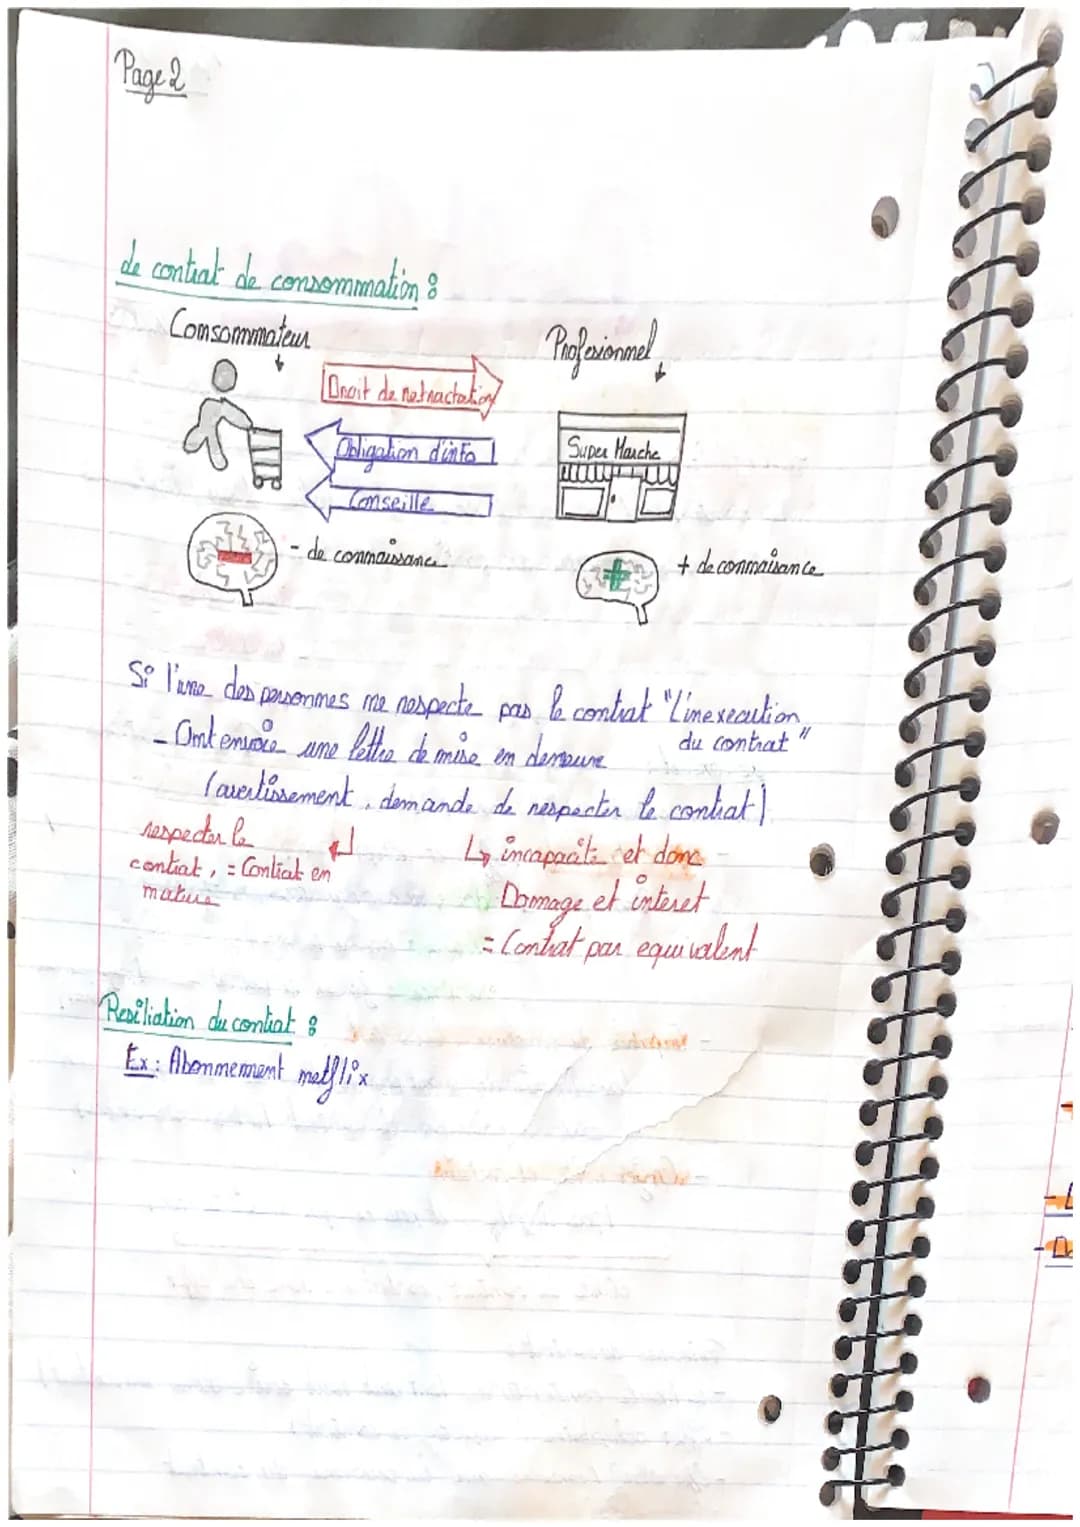 Page 2
de contrat de consommation :
Consommateur
Profesionnel
Droit de retractation
Obligation d'info
Conseille
Super Marche
- de connaissance
+ de connaisance
Si l'une des personnes ne respecte pas le contrat "L'inexecution
du contrat"
- Ont envoie une lettre de mise en demeure
(avertissement, demande de respecter le contrat)
respecter le
contrat, = Contrat en
nature
↳ incapacite et donc
Domage et interet
= Contrat par equivalent
Resiliation du contrat :
Ex : Abonnement netflix